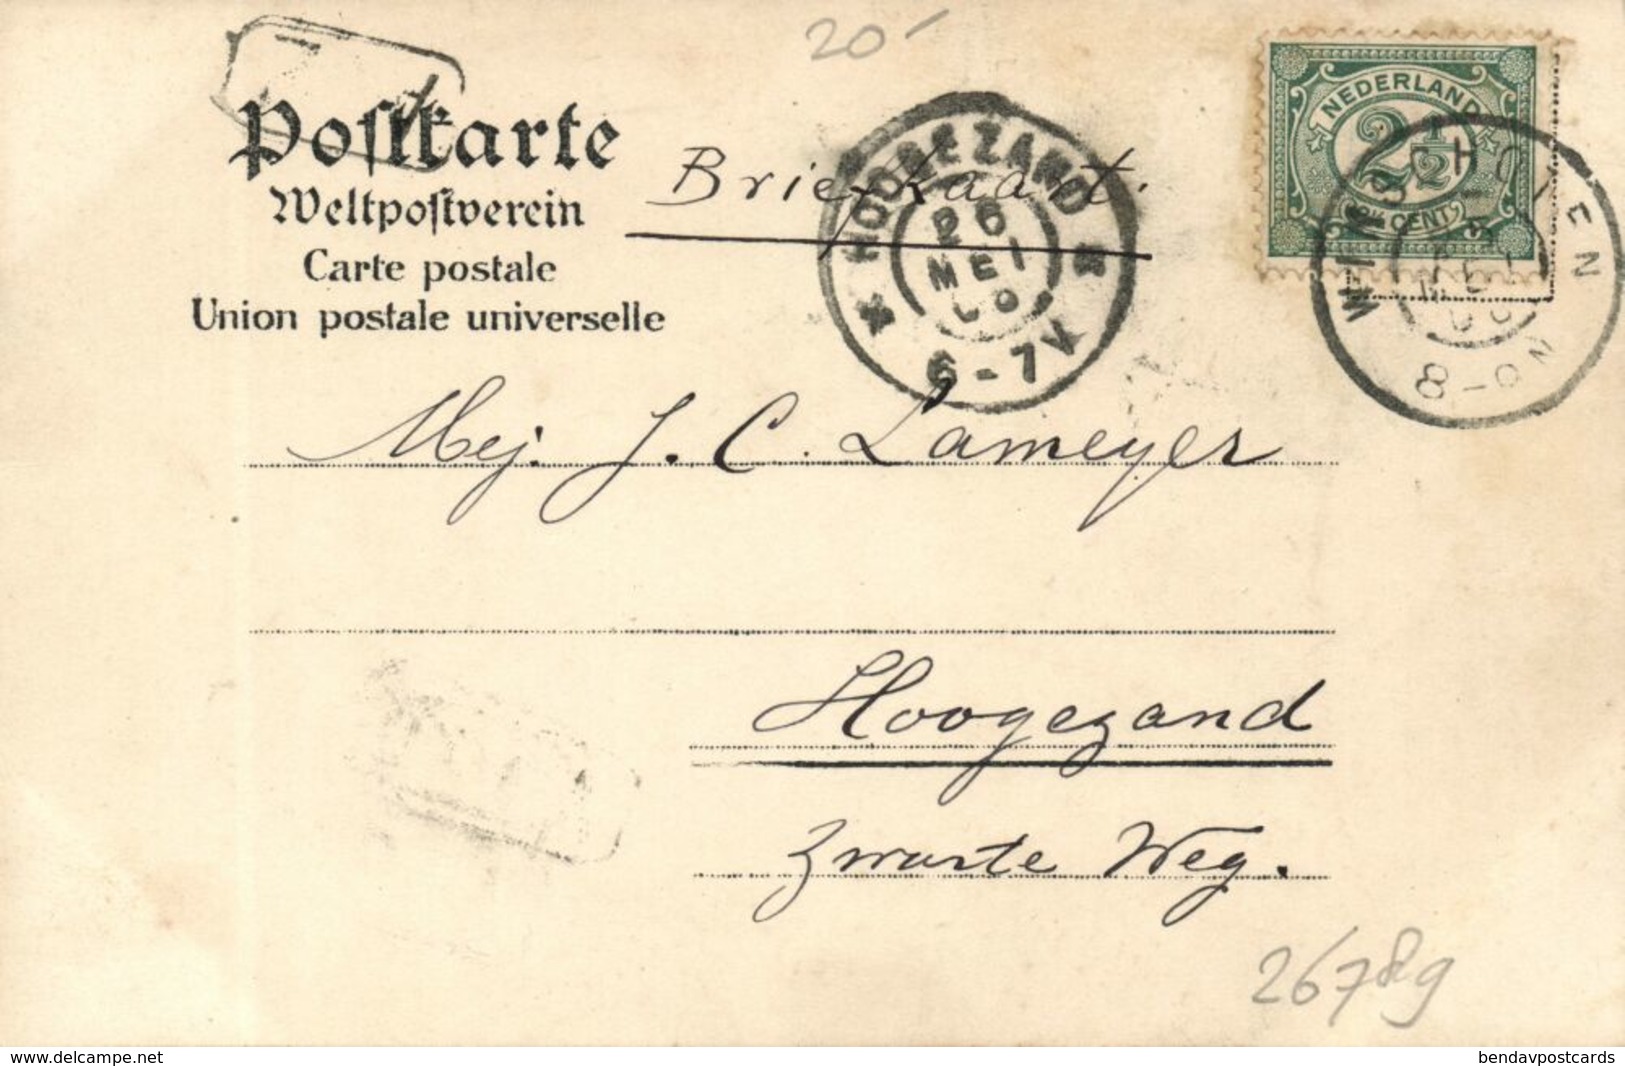 20-
Postkarte
Weltpostverein
Carte postale
Union postale universelle
Briefkaart.
HOOGEZAND
26
MEI
00
6-7V
NEDERLAND
2 1/2
CENT
WINSCHOTEN
8-9N
Mej. J. C. Lameyer
Hoogezand
Zwarte Weg.
26789
www.delcampe.net
bendavpostcards